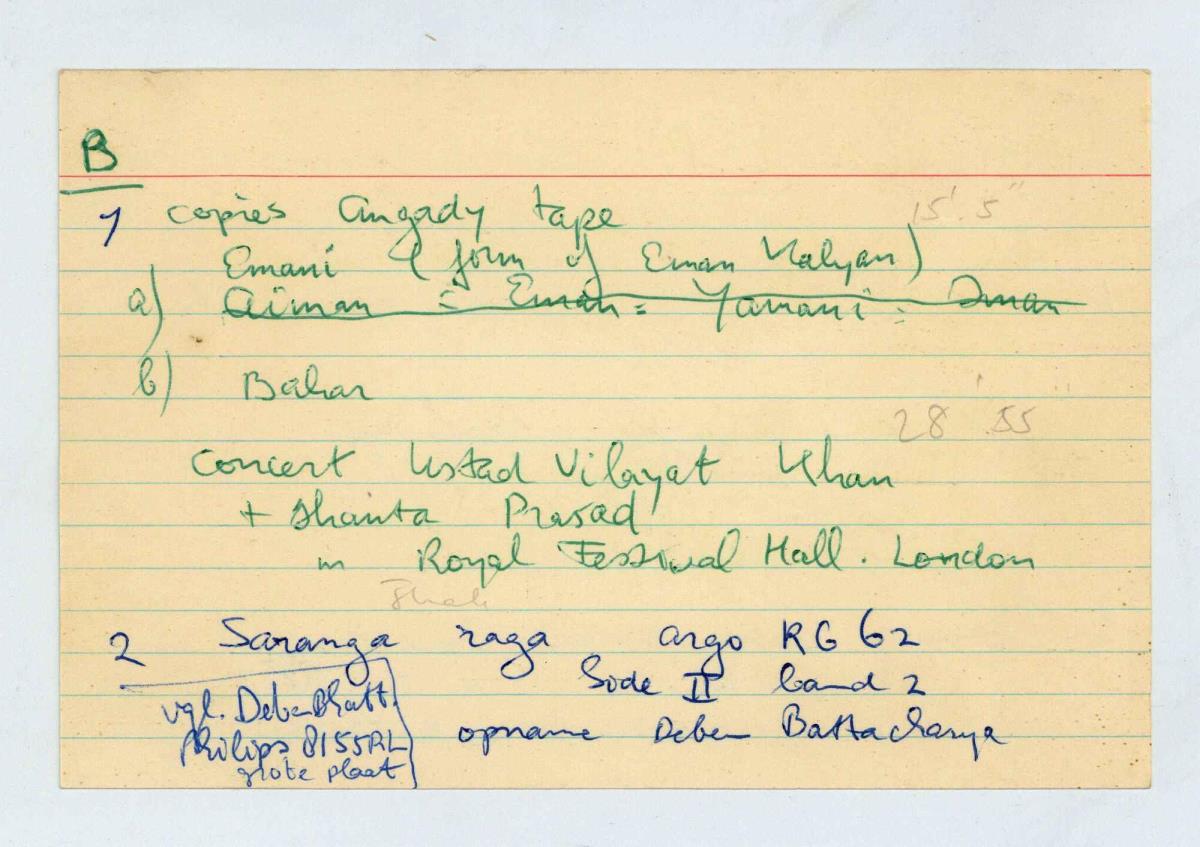 B
1 copies Angady tape 15' 5"
Emani (form of Eman Kalyan)
a) Aiman = Eman = Yamani = Iman
b) Bahar
28' 55"
Concert Ustad Vilayat Khan
+ Shanta Prasad
in Royal Festival Hall. London
2 Saranga raga argo RG 62
Side II band 2
vgl. Deben Bhatt.
Philips 8155RL opname Deben Battacharya
grote plaat